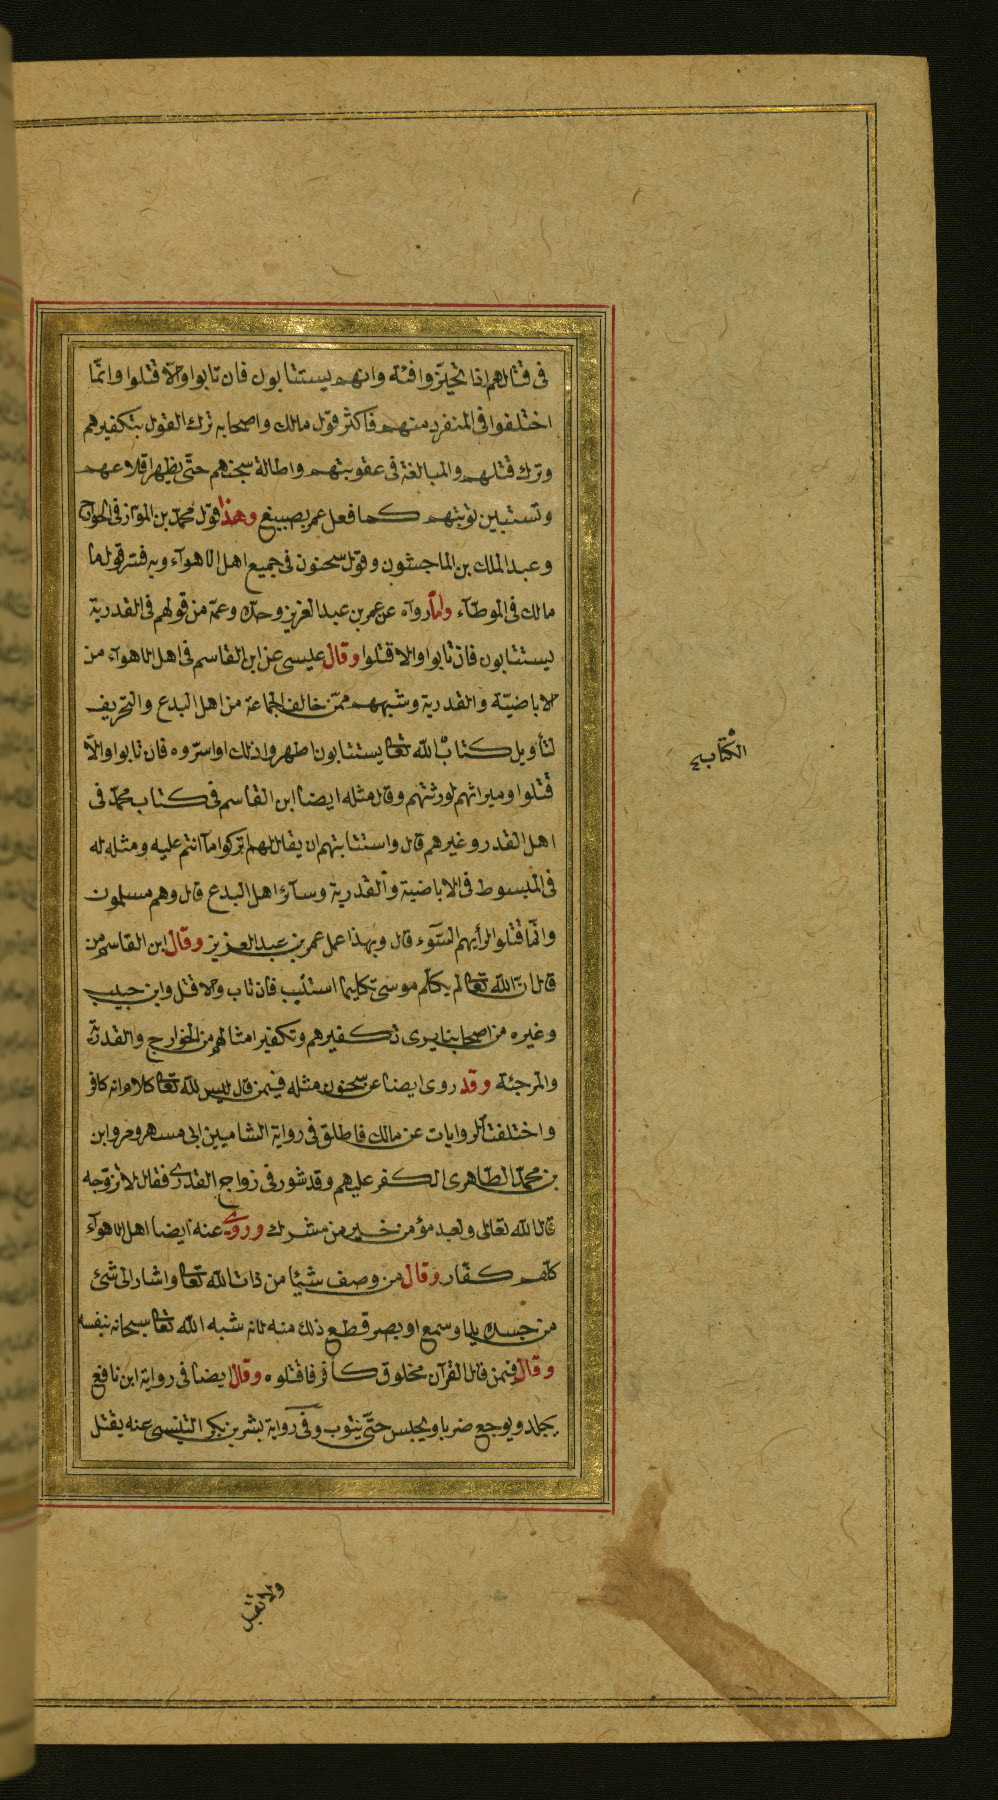 فى قتالهم اذا تحيزوا فئة وانهم يستتابون فان تابوا والا قتلوا وانما
اختلفوا فى المنفرد منهم فاكثر قول مالك واصحابه ترك القول بتكفيرهم
وترك قتلهم والمبالغة فى عقوبتهم واطالة سجنهم حتى يظهر اقلاعهم
وتستبين توبتهم كما فعل عمر بصبيغ وهذا قول محمد بن المواز فى الخوارج
وعبد الملك بن الماجشون وقول سحنون فى جميع اهل الاهوآء وبه فسر قول ما
مالك فى الموطآء وما رواه عن عمر بن عبد العزيز وجده وعمه من قولهم فى القدرية
يستتابون فان تابوا والا قتلوا وقال عيسى عن ابن القاسم فى اهل الاهوآء من
الاباضية والقدرية وشبههم ممن خالف الجماعة من اهل البدع والتحريف
لتأويل كتاب الله تعا يستتابون اظهروا ذلك او اسروه فان تابوا والا
قتلوا وميراثهم لورثتهم وقال مثله ايضا ابن القاسم فى كتاب محمد فى
اهل القدر وغيرهم قال واستتابتهم ان يقال لهم اتركوا مآ انتم عليه ومثله له
فى المبسوط فى الاباضية والقدرية وسآئر اهل البدع قال وهم مسلمون
وانما قتلوا لرأيهم السوء قال وبهذا عمل عمر بن عبد العزيز وقال ابن القاسم من
قال ان الله تعا لم يكلم موسى تكليما استتيب فان تاب والا قتل وابن حبيب
وغيره من اصحابنا يرى تكفيرهم وتكفير امثالهم من الخوارج والقدرية
والمرجئة وقد روى ايضا عن سحنون مثله فيمن قال ليس لله تعا كلام انه كافر
واختلفت الروايات عن مالك فاطلق فى رواية الشاميين ابى مسهر ومروان
بن محمد الطاهرى الكفر عليهم وقد شور فى زواج القدرى فقال لا تزوجه
قال الله تعالى ولعبد مؤمن خير من مشرك وروى عنه ايضا اهل الاهوآء
كلهم كفار وقال من وصف شيئا من ذات الله تعا واشار الى شئ
من جسده يد او سمع او بصر قطع ذلك منه لانه شبه الله تعا سبحانه بنفسه
وقال فيمن قال القرآن مخلوق كافر فاقتلوه وقال ايضا فى رواية ابن نافع
يجلد ويوجع ضربا ويحبس حتى يتوب وفى رواية بشر بن بكر التنيسى عنه يقتل
الكتاب
ولا تقبل